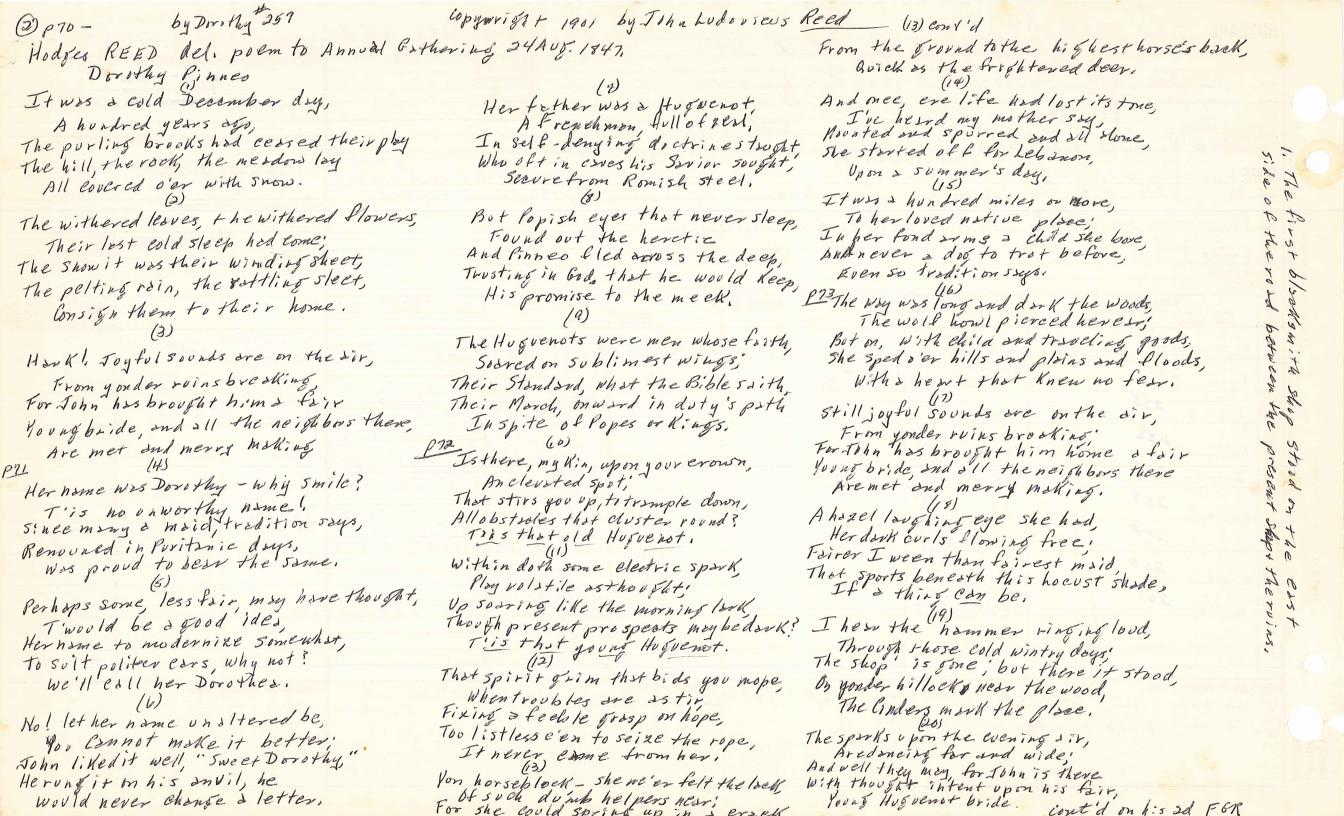 ② p70 - by Dorothy #257 Copywright 1901 by John Ludovicus Reed
Hodges REED del. poem to Annual Gathering 24 Aug. 1847.
Dorothy Pinneo
(1)
It was a cold December day,
A hundred years ago,
The purling brooks had ceased their play
The hill, the rock, the meadow lay
All covered o'er with snow.
(2)
The withered leaves, the withered flowers,
Their last cold sleep had come;
The snow it was their winding sheet,
The pelting rain, the rattling sleet,
Consign them to their home.
(3)
Hark! Joyful sounds are on the air,
From yonder ruins breaking,
For John has brought him a fair
Young bride, and all the neighbors there,
Are met and merry making
P71
(4)
Her name was Dorothy - why smile?
T'is no unworthy name!
Since many a maid, tradition says,
Renouned in Puritanic days,
Was proud to bear the same.
(5)
Perhaps some, less fair, may have thought,
T'would be a good idea,
Her name to modernize somewhat,
To suit politer ears, why not?
We'll call her Dorothea.
(6)
No! let her name unaltered be,
You cannot make it better;
John liked it well, "Sweet Dorothy,"
He rung it on his anvil, he
would never change a letter.
(7)
Her father was a Huguenot,
A Frenchman, full of zeal,
In self-denying doctrines taught,
Who oft in caves his Savior sought,
Secure from Romish steel.
(8)
But Popish eyes that never sleep,
Found out the heretic
And Pinneo fled across the deep,
Trusting in God, that he would keep,
His promise to the meek.
(9)
The Huguenots were men whose faith,
Soared on sublimest wings;
Their Standard, what the Bible saith,
Their March, onward in duty's path
In spite of Popes or Kings.
P72
(10)
Is there, my kin, upon your crown,
An elevated spot,
That stirs you up, to trample down,
All obstacles that cluster round?
T'is that old Huguenot.
(11)
Within doth some electric spark,
Play volatile as thought;
Up soaring like the morning lark,
Though present prospects may be dark?
T'is that young Huguenot.
(12)
That spirit grim that bids you mope,
When troubles are astir,
Fixing a feeble grasp on hope,
Too listless e'en to seize the rope,
It never came from her.
(13)
Yon horseblock - she ne'er felt the lack
Of such dumb helpers near;
For she could spring up in a crack
(13) cont'd
From the ground to the highest horse's back,
Quick as the frightened deer.
(14)
And once, ere life had lost its tone,
I've heard my mother say,
Mounted and spurred and all alone,
She started off for Lebanon,
Upon a summer's day.
(15)
It was a hundred miles or more,
To her loved native place;
In her fond arms a child she bore,
And never a dog to trot before,
Even so tradition says.
(16)
P73 The way was long and dark the woods,
The wolf howl pierced her ear;
But on, with child and traveling goods,
She sped o'er hills and plains and floods,
With a heart that knew no fear.
(17)
Still joyful sounds are on the air,
From yonder ruins breaking;
For John has brought him home a fair
Young bride, and all the neighbors there
Are met and merry making.
(18)
A hazel laughing eye she had,
Her dark curls flowing free;
Fairer I ween than fairest maid,
That sports beneath this locust shade,
If a thing can be.
(19)
I hear the hammer ringing loud,
Through those cold wintry days;
The shop' is gone; but there it stood,
On yonder hillock, near the wood,
The Cinders mark the place.
(20)
The sparks upon the evening air,
Are dancing far and wide;
And well they may, for John is there
With thought intent upon his fair,
Young Huguenot bride.
cont'd on his 2d FGR
1. The first blacksmith shop stood on the east
side of the road between the present shop & the ruins.